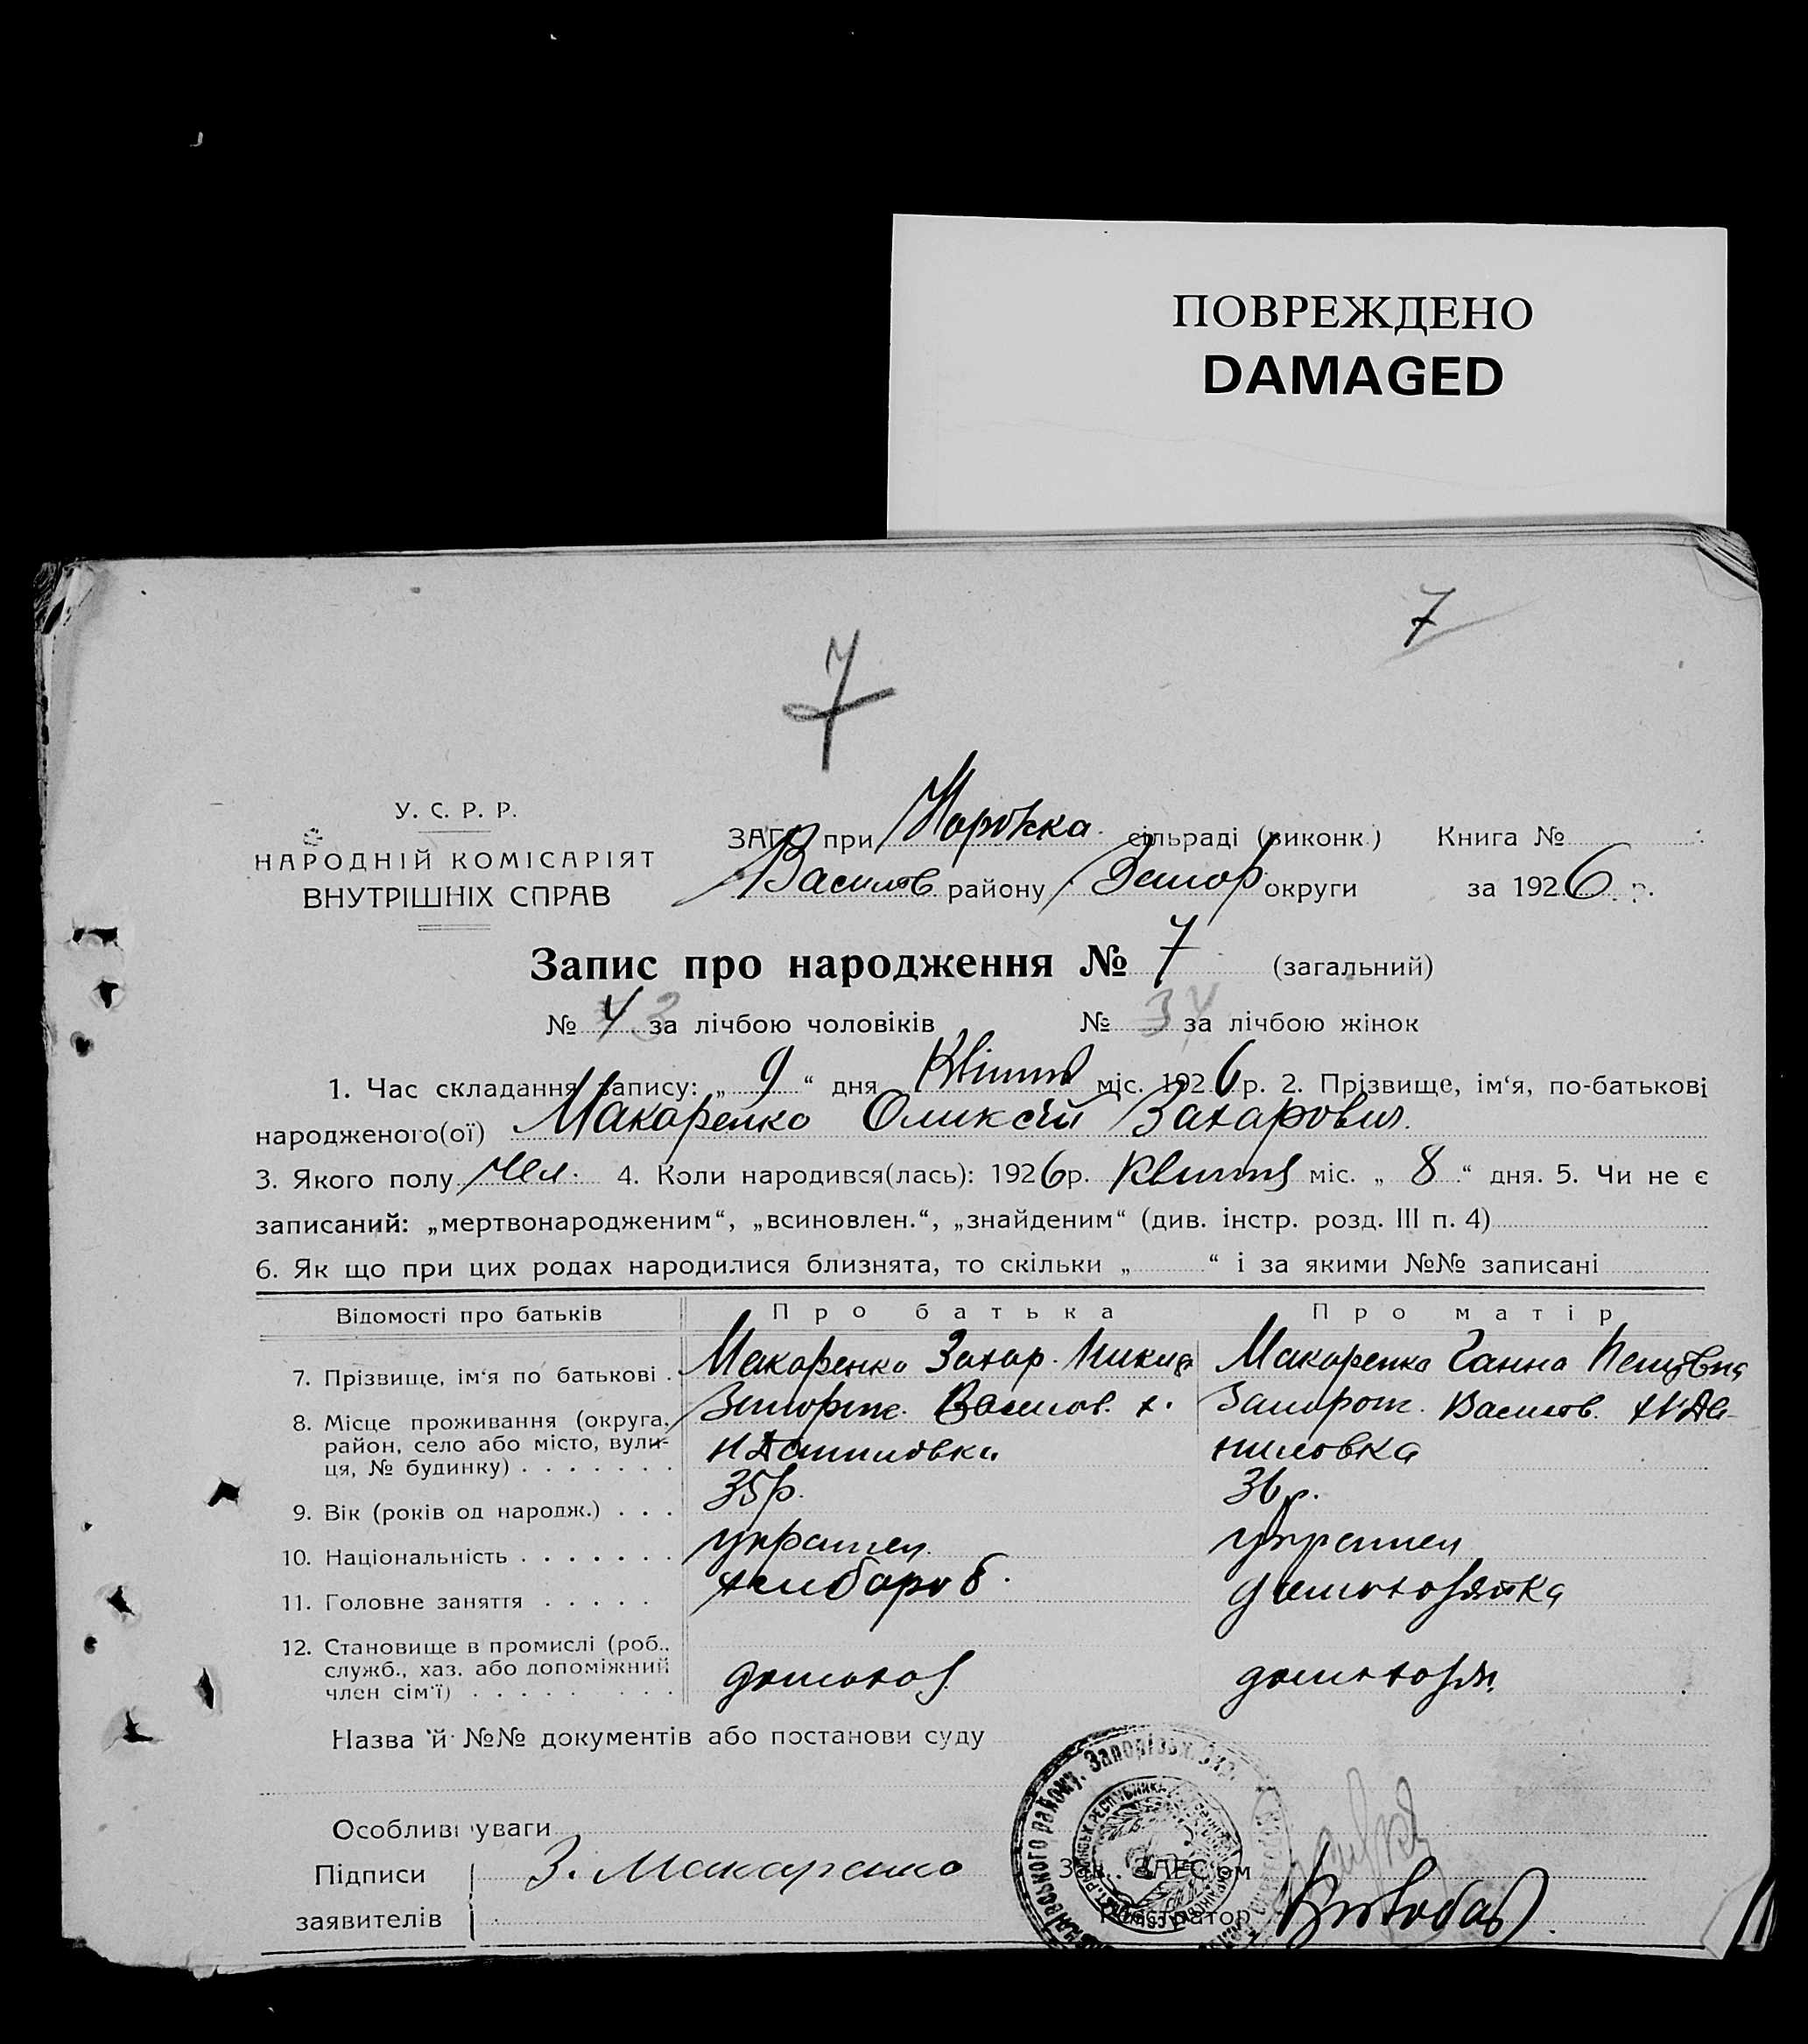 ПОВРЕЖДЕНО
DAMAGED
7
7
У. С. Р. Р.
НАРОДНІЙ КОМІСАРІЯТ
ВНУТРІШНІХ СПРАВ
ЗАГС при сільраді (виконк.) Книга №
Василів району Запор округи за 1926 р.
Запис про народження № 7 (загальний)
№ 4 за лічбою чоловіків № за лічбою жінок
1. Час складання запису: „ 9 “ дня Квітня міс. 1926 р. 2. Прізвище, ім‘я, по-батькові
народженого(ої) Макаренко Оликсій Захарович
3. Якого полу Чол. 4. Коли народився(лась): 1926р. Квитня міс. „ 8 “ дня. 5. Чи не є
записаний: „мертвонародженим“, „всиновлен.“, „знайденим“ (див. інстр. розд. III п. 4)
6. Як що при цих родах народилися близнята, то скільки „ “ і за якими №№ записані
Відомості про батьків Про батька Про матір
7. Прізвище, ім‘я по батькові . Макаренко Захар. Никит Макаренко Ганна Петровна
8. Місце проживання (округа, Запорож. Василов. х. Запорож. Василов. х Н Да-
район, село або місто, вули- Н Даниловка ниловка
ця, № будинку) . . . . . . .
9. Вік (років од народж.) . . . 35р. 36 р.
10. Національність . . . . . . . украинец украинец
11. Головне заняття . . . . . хлибороб. домохозяйка
12. Становище в промислі (роб.,
служб., хаз. або допоміжний домохоз. домохозя.
член сім‘ї) . . . . . . . . .
Назва й №№ документів або постанови суду
Особливі уваги
Підписи З. Макаренко Зав. ЗАГС‘ом
заявителів Реєстратор
району, Запорізьк. Окр.